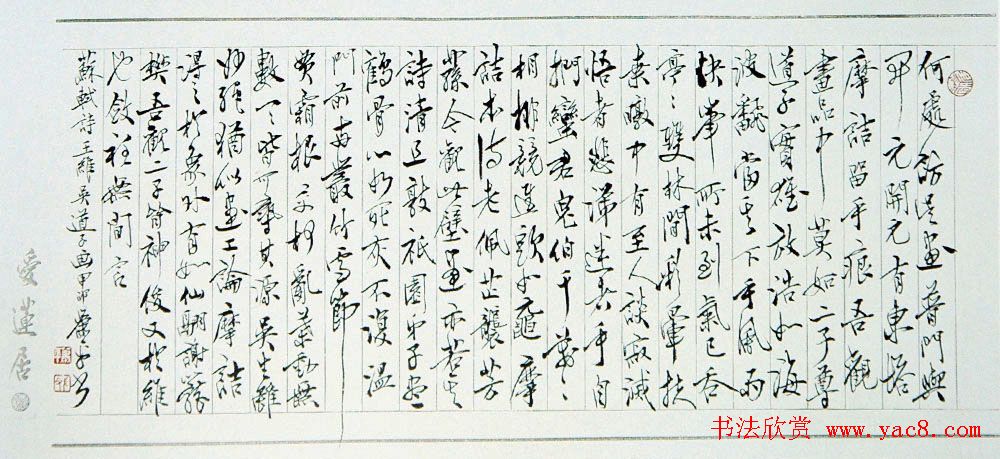 何處訪吳畫普門與
開元開元有東塔
摩詰留手痕吾觀
畫品中莫如二子尊
道子實雄放浩如海
波翻當其下手風雨
快筆所未到氣已吞
亭〻雙林間彩暈扶
桑暾中有至人談寂滅
悟者悲涕迷者手自
捫蠻君鬼伯千萬〻
相排競進頭如黿摩
詰本詩老佩芷襲芳
蓀今觀此壁畫亦若其
詩清且敦祇園弟子盡
鶴骨心如死灰不復溫
門前兩叢竹雪節
貫霜根交柯亂葉動無
數一〻皆可尋其源吳生雖
妙絕猶似畫工論摩詰
得之於象外有如仙翮謝籠
樊吾觀二子皆神俊又於維
也斂衽無間言
蘇軾詩王維吳道子画
愛蓮居
书法欣赏 www.yac8.com